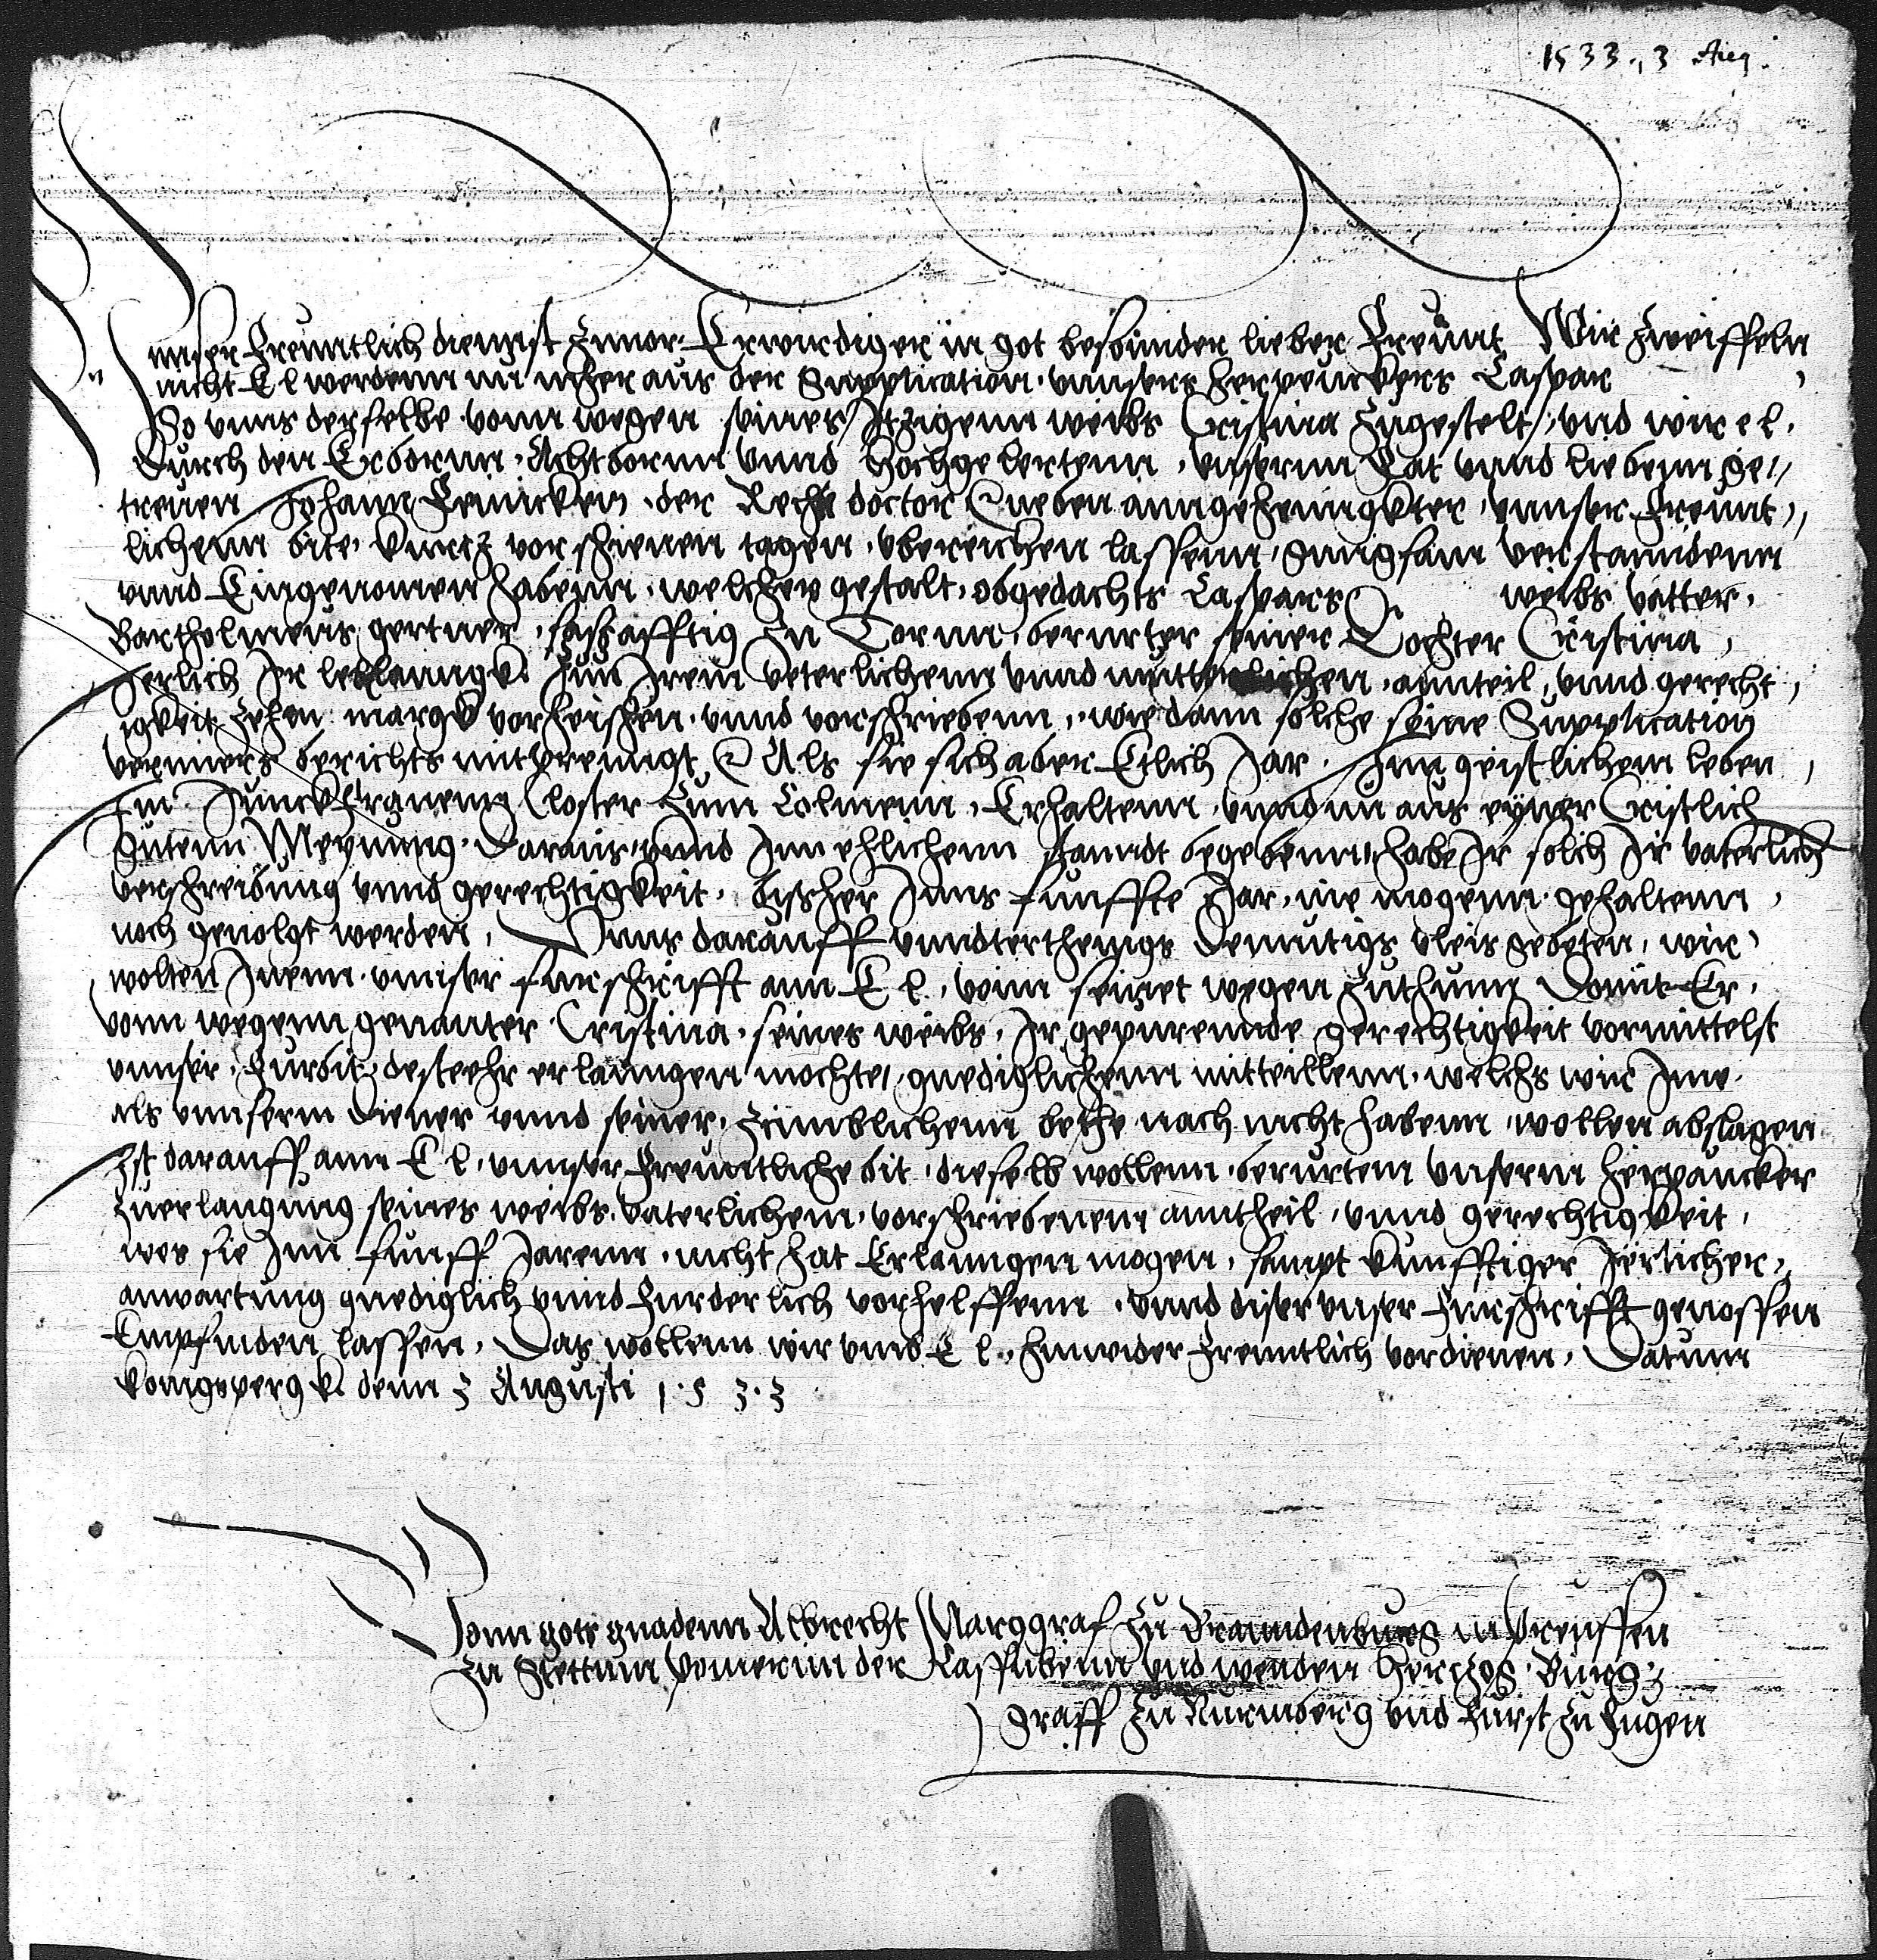 1533., 3 Aug.
Unnser freuntlich diennst zuuor. Erwirdiger in got besounder lieber freunt Wir zweiffeln
nicht E l werdenn nu mher aus der Supplication vnnsers herpeuckers Caspar
So vnns derselbe vonn wegen seines Itzigenn weibs Cristina zugestelt, vnd wir e l.
Durch den Erbornn, Achtbornn vnnd Hochgelertenn, vnserm Rat vnnd liebenn ge„
treuen Johann Reinicken der Recht doctor Eneben anngehenngkter vnnser freunt„
lichenn bite, kurtz vorschienen tagen, vbereichen lassenn, gnugsam verstanndenn
vnnd Eingenomen habenn, welcher gestalt, obgedachts Caspars weibs vatter,
Bartholmeus gertner, seshafftig zu Tornn, berurter seiner Tochter Cristina,
Jerlich Ir leblanngk. Zun Irem veterlichenn vnnd mutterlichen, annteil, vnnd gerecht
igkeit Zehen margk vorheischen, vnnd vorschriebenn, wie dann solche seine Supplication
vernners berichts mitbrenngt Als sie sich aber Etlich Jar, Inn geistlichem leben
Im Junckfrauenn Closter Zum Colmenn, Erhaltenn, vnnd nu aus eyner Cristlich
Gutenn Meynung. Daraus vnnd Inn ehlichenn stanndt begebenn, habe Ir solch Ir vaterlich
verschreibung vnnd gerechtigkeit, bisher Inns funffte Jar, nie mogenn gehaltenn,
noch geuolgt werden, Vnns darauff vnndterthenigs demutigs vleis gebeten, wir
wolten Inenn vnnser furschrifft ann E l., vonn seinet wegen zuthunn Domit Er,
vonn wegenn genanter Cristina, seines weibs, Ir gepurennde gerechtigkeit vormittelst
vnnser furbit, desteehr erlanngen mochte, gnediglichenn mitteillenn, welchs wir Ime
als vnnserm diener vnnd seiner, Zimblichenn bethe nach nicht habenn wollen abslagen
Ist darauff ann E l. vnnser freuntliche bit, dieselb wollenn berurtem vnserm herpaucker
Zuerlangung seines weibs, vaterlichenn, vorschriebenenn anntheil, vnnd gerechtigkeit,
wes sie Inn funff Jarenn, nicht hat Erlanngen mogen, sampt kunfftiger Jerlicher,
anwartung gnediglich vnnd furderlich vorhelffenn, vnnd diser vnser furschrifft genossen
Empfinden lassen, Das wollenn wir vmb E l. hinwider freuntlich vordienen, Datum
konigspergk denn 3 Augusti 1.5 3.3
Vonn gots gnadenn Albrecht Marggraf Zu Branndenburg in Preussen
Zu Stettinn Pomerinn der Cassubenn vnd wenden Hertzog Burg:
graff Zu Nurmberg vnd furst zu Rugen